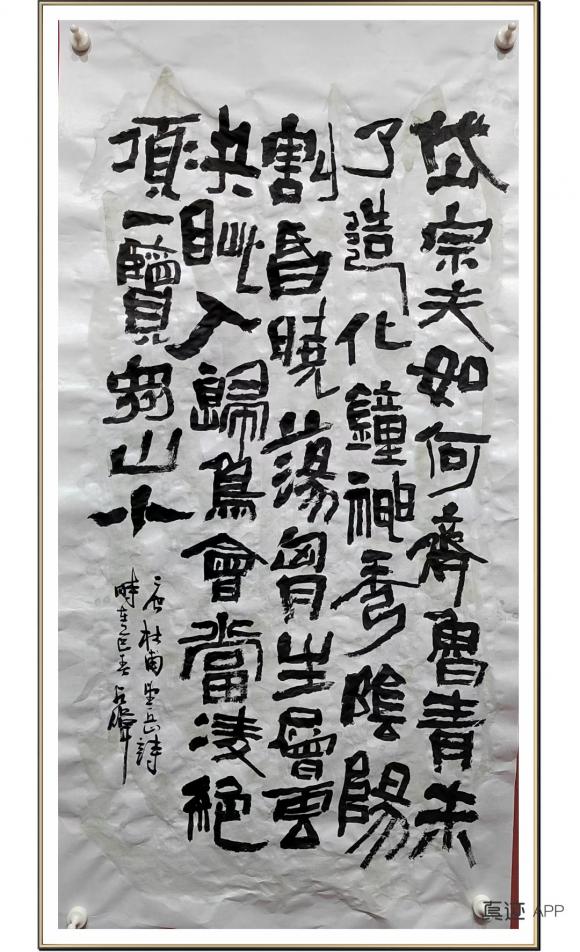 岱宗夫如何齊魯青未
了造化鐘神秀陰陽
割昏曉蕩胷生層雲
決眦入歸鳥會當凌絕
頂一覽眾山小
杜甫望岳詩
時在乙巳春
真迹 APP